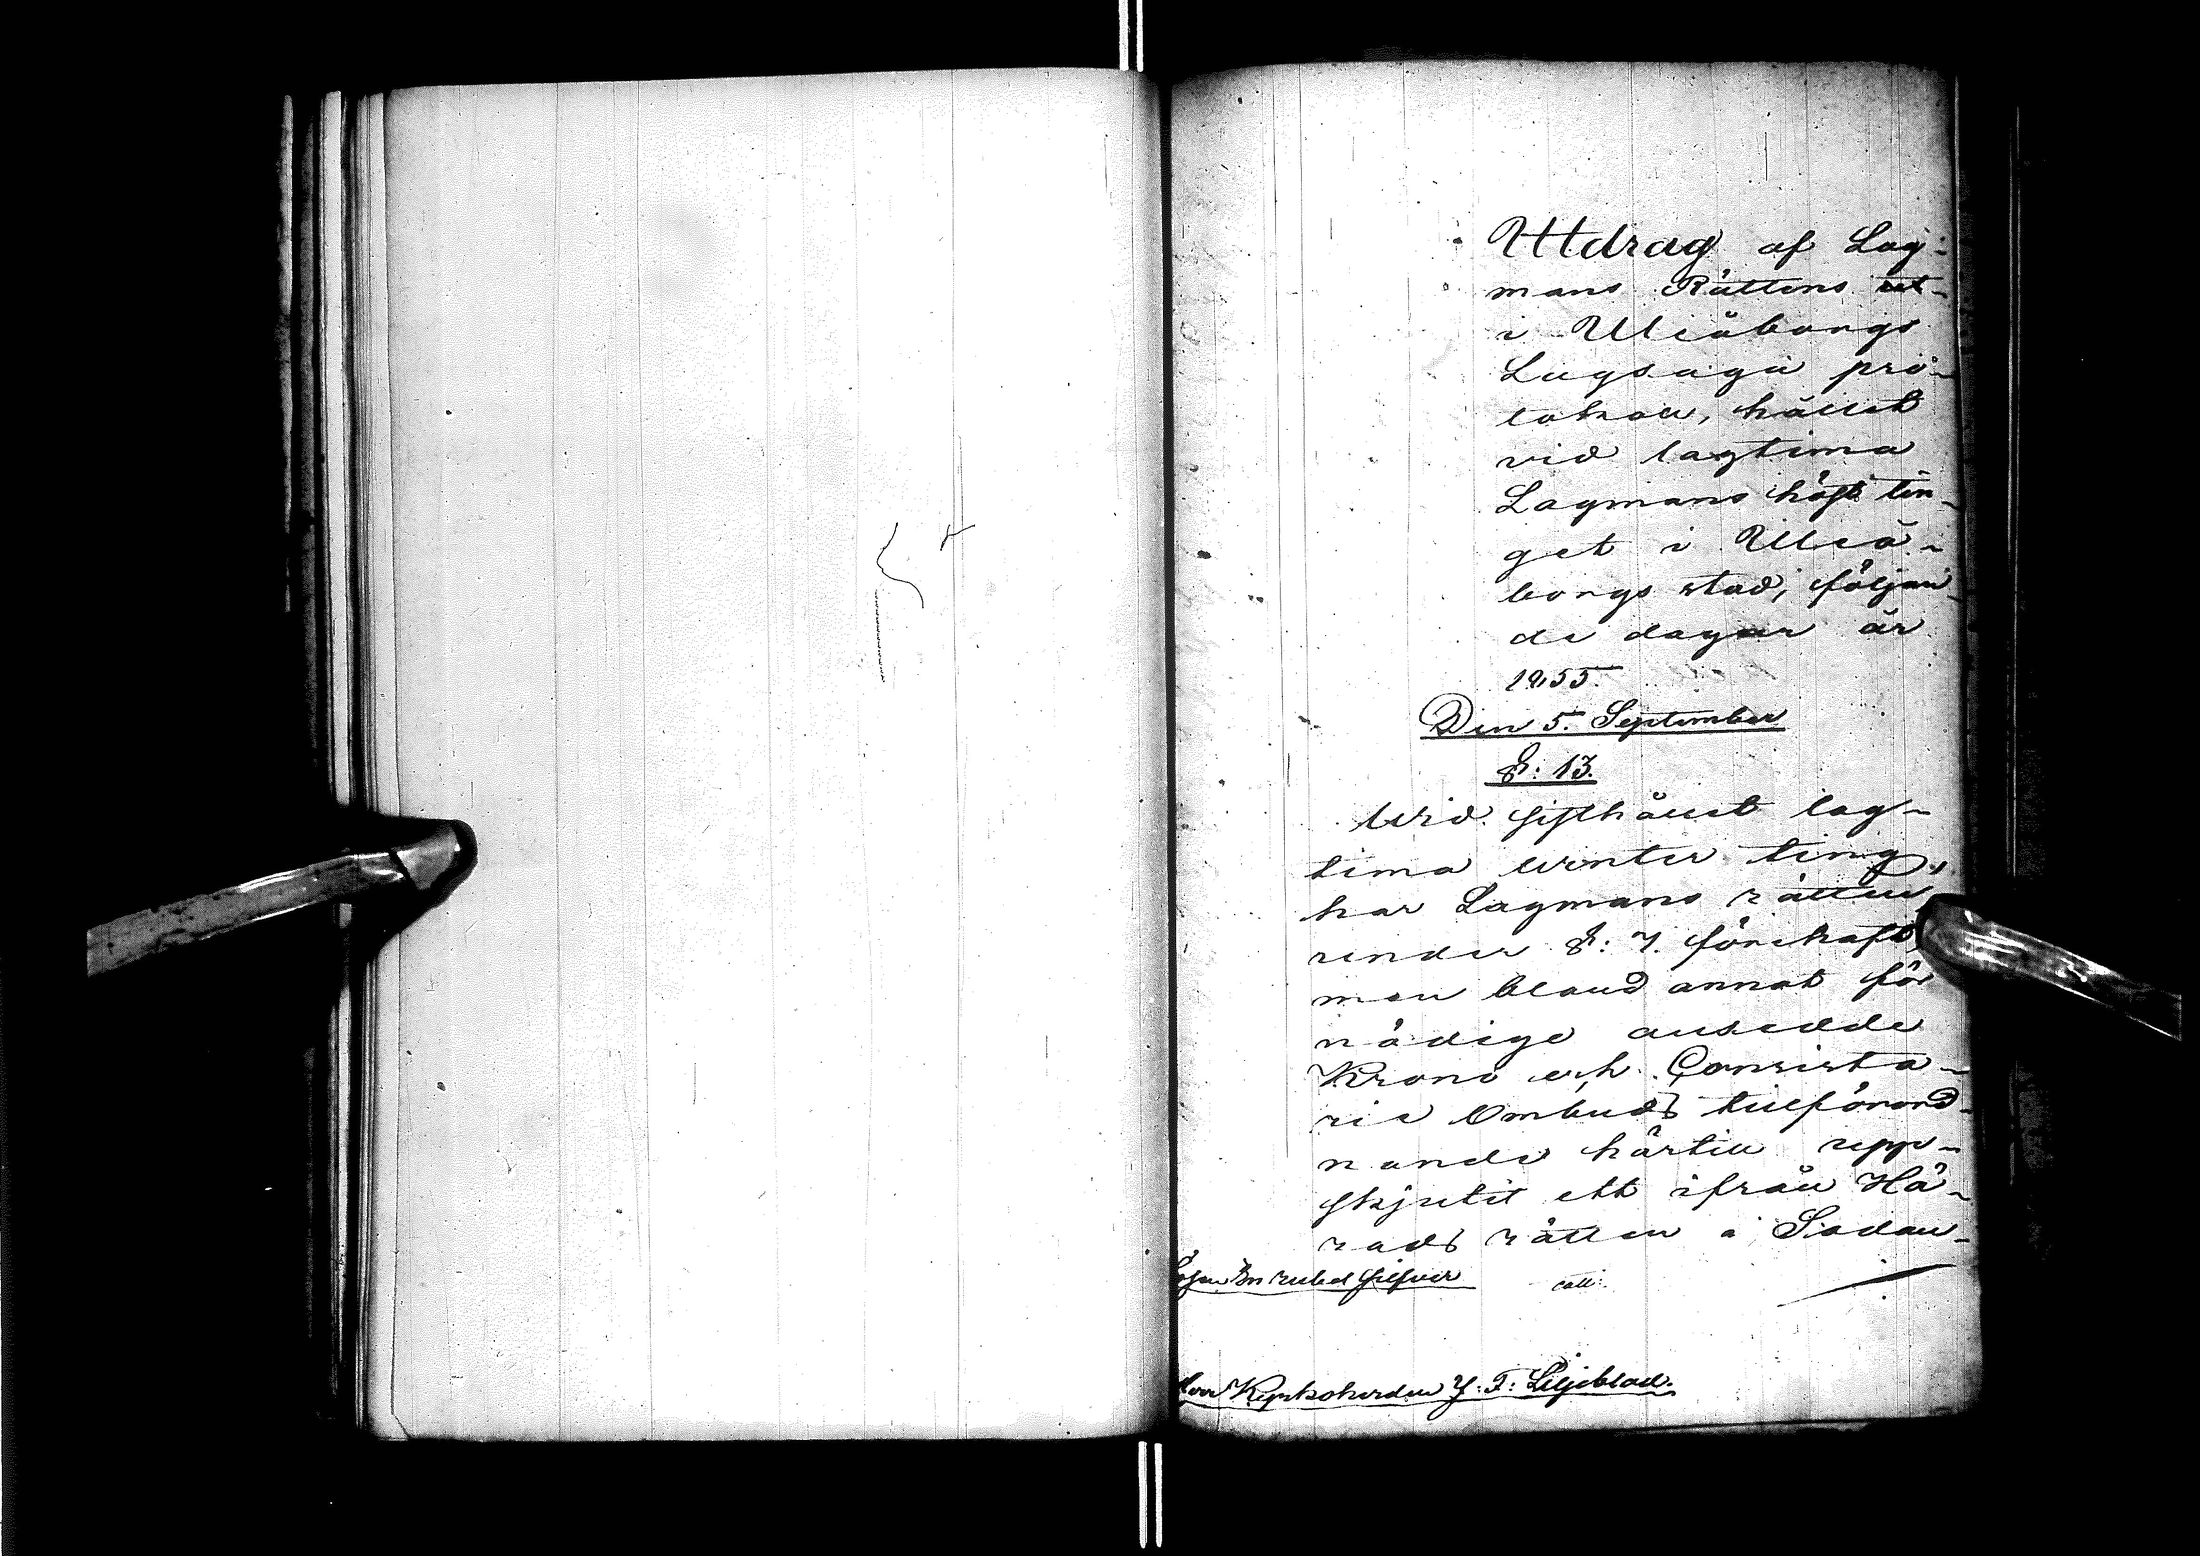 Utdrag af Lag-
mans Rättens
i Uleåborgs
Lagsaga pro-
tokoll, hållit
vid lagtima
Lagmans höst tin-
get i Uleå-
borgs stad, följan-
de dagar år
1855.
Den 5. September
§: 13.
Wid sisthållit lag-
tima winter ting,
har Lagmans rätten
under §: 7. förekast
men bland annat för
nödige ansedde
Krono och Consisto-
rie Ombuds tillförord-
nande härtill upp-
skjutit ett ifrån Hä-
rads rätten i Sodan-
silfver
Kyrkoherden J: F: Liljeblad.